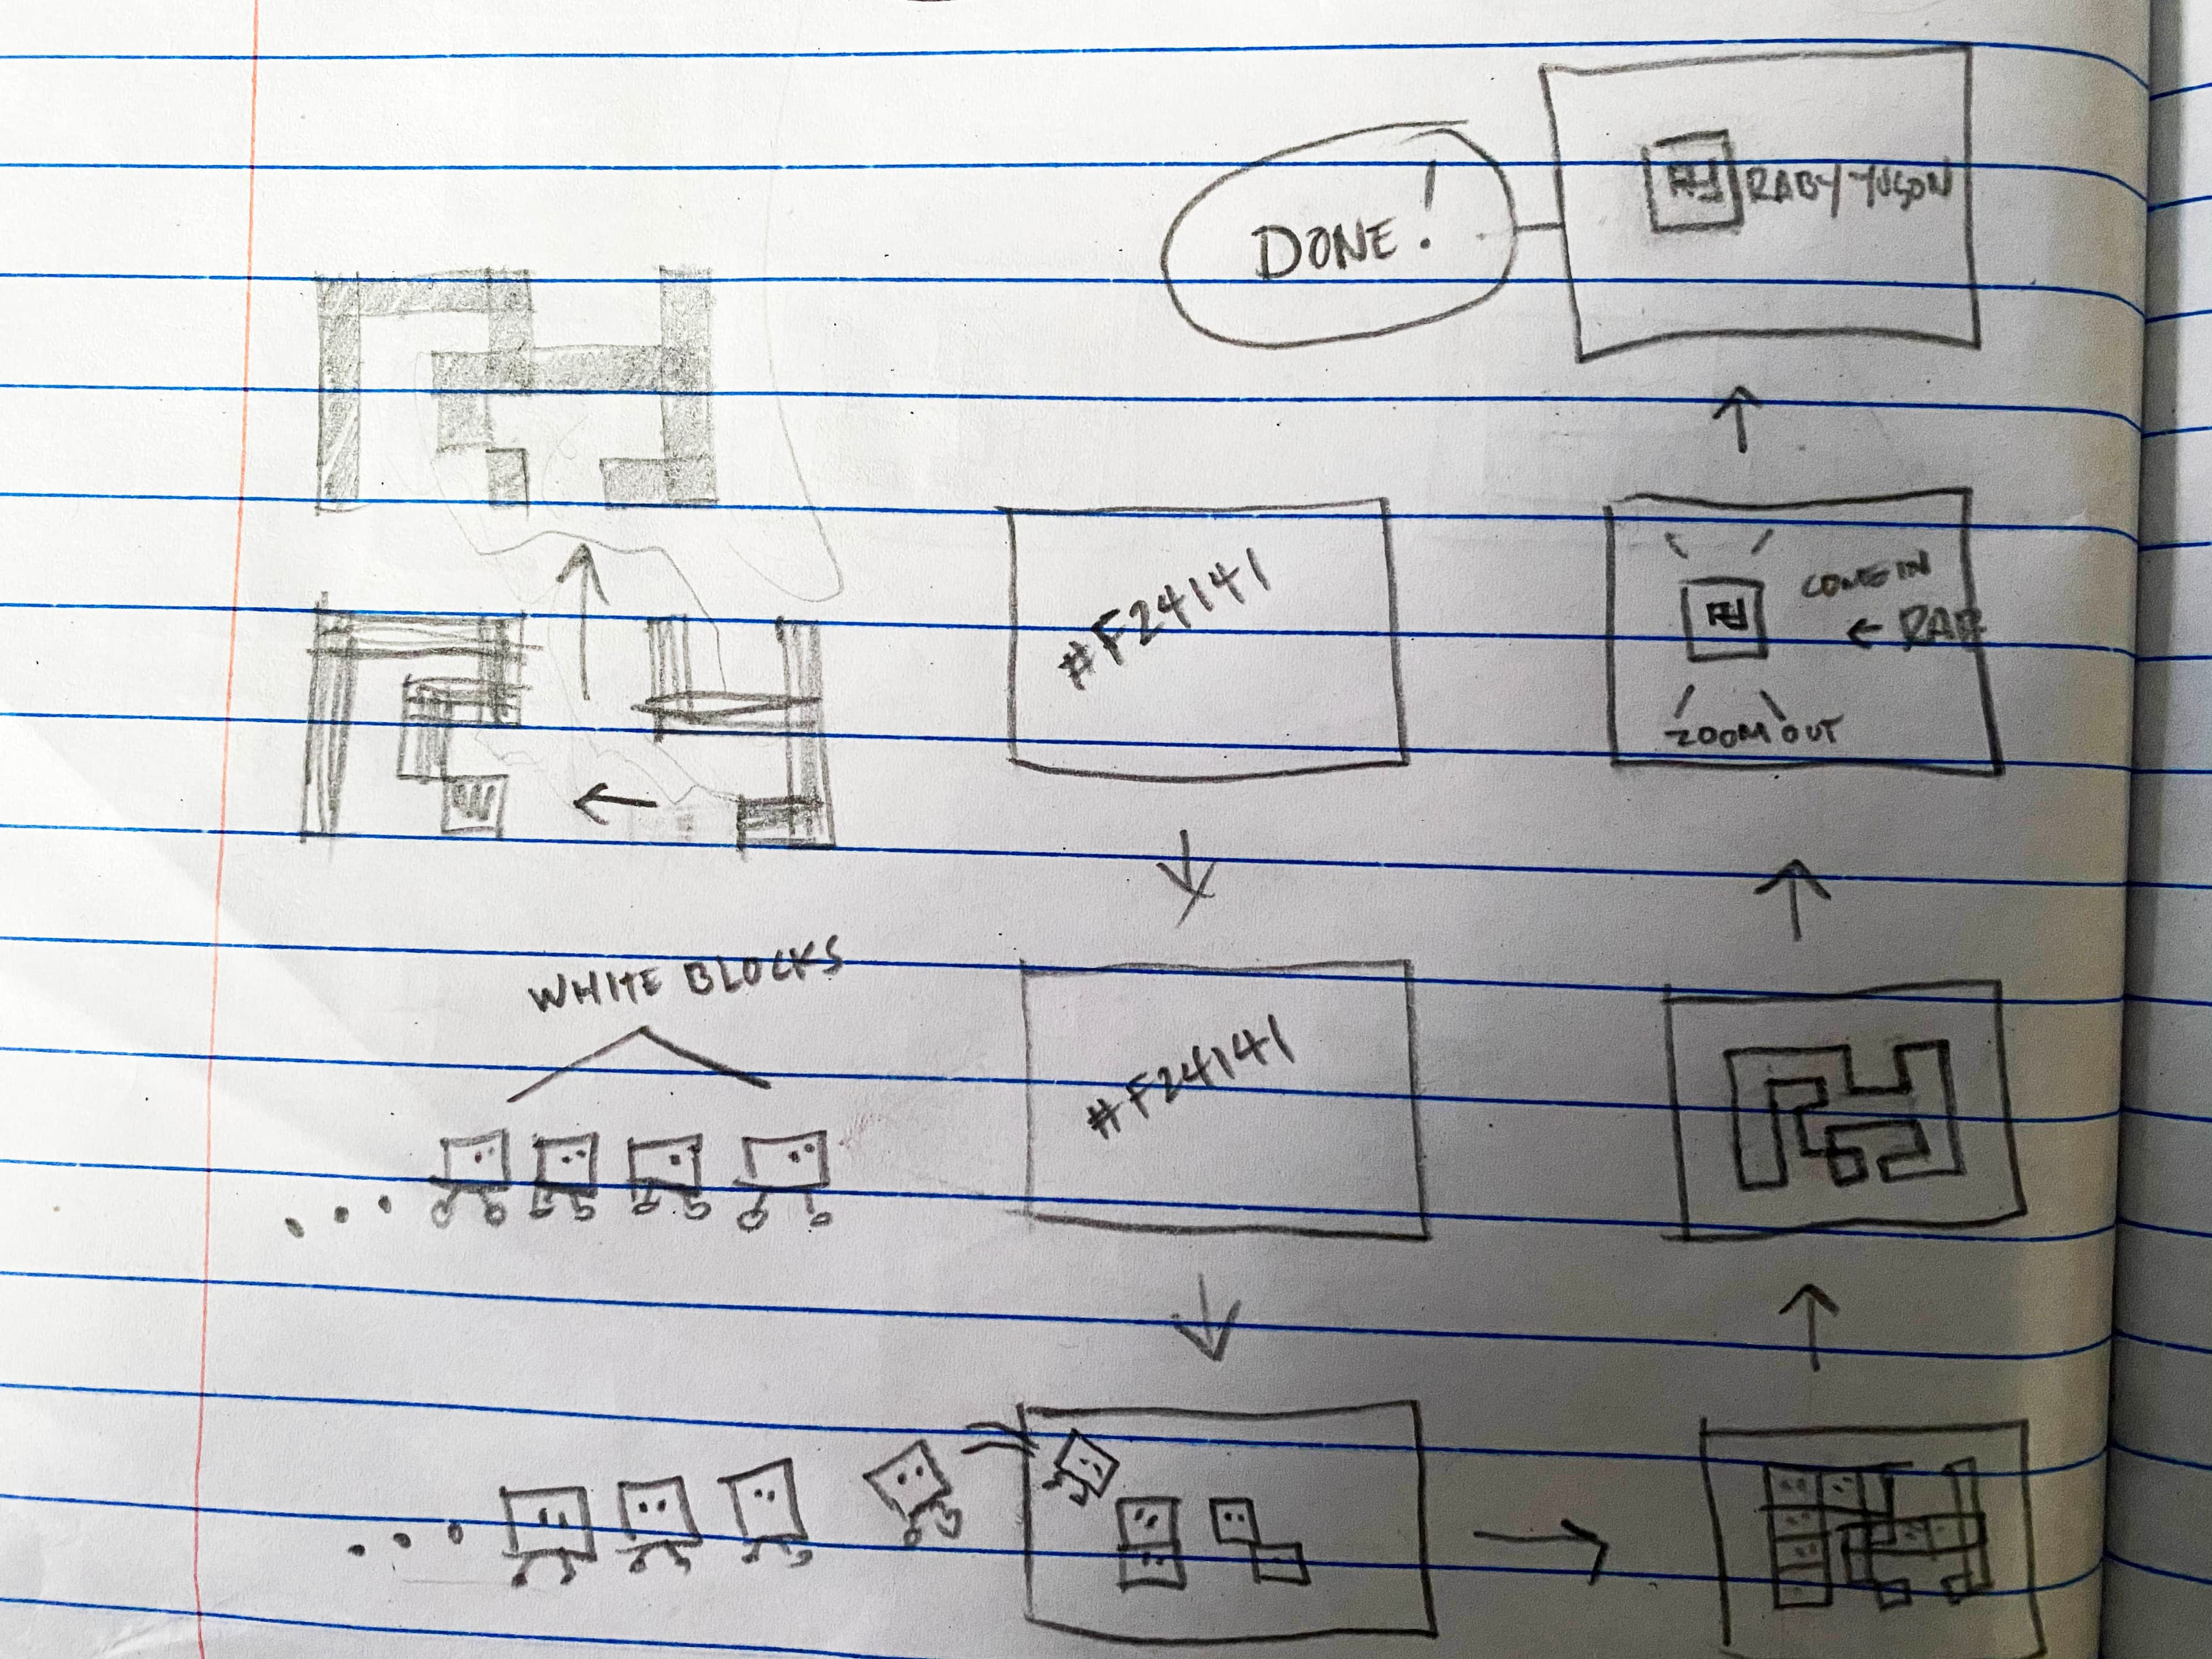 DONE!
RABY YUSON
#F24141
COME IN
← RAB
ZOOM OUT
WHITE BLOCKS
#F24141